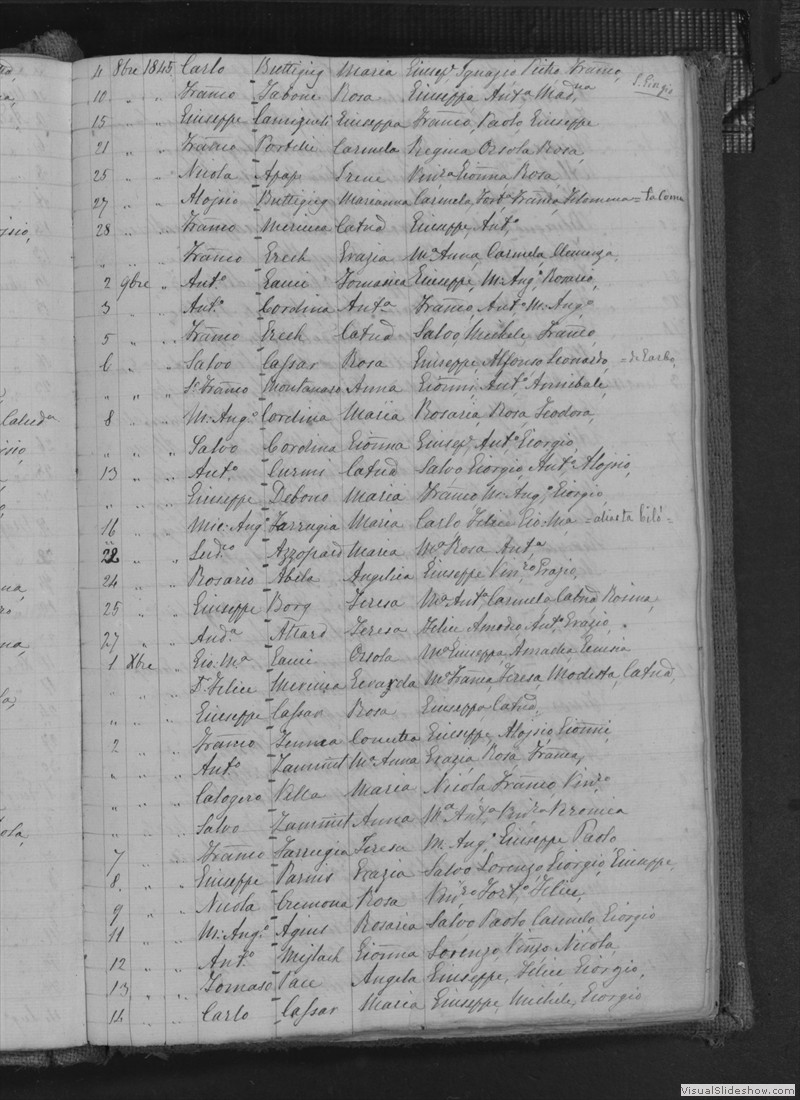 4 8bre 1845 Carlo Buttigieg Maria Giusep. Ignazio Franco, S. Giorgio
10 " " Franco Zabone Rosa Giuseppa Ant.a Mad.na
15 " " Giuseppe Giuseppa Franco, Paolo Giuseppe
21 " " Franco Portelli Carmela Regina Orsola Rosa,
25 " " Nicola Apap Irene Vin.za Gionna Rosa
27 " " Alojsio Buttigieg Marianna Carmela, Fort.a Franca, Filomena =
28 " " Franco Catnd Giuseppe, Ant.o
" " Franco Grech Grazia M.a Anna, Carmela Clemenza,
2 9bre " Ant.o Gauci Tomasina Giuseppe M: Ang.o Rosario,
3 " " Ant.o Cordina Ant.a Franco, Ant.o M: Ang.o
5 " " Franco Grech Catnd Salvo, Michele, Franco,
6 " " Salvo Cassar Rosa Giuseppe Alfonso Leonardo,
" " " Franco Montanaro Anna Gionni, Ant.o Annibale,
8 " " M: Ang.o Cordina Maria Rosaria, Rosa, Teodora,
" " " Salvo Cordina Gionna Giusep. Ant.o Giorgio,
13 " " Ant.o Curmi Catnd Salvo Giorgio Ant.o Alojsio,
" " " Giuseppe Debono Maria Franco, M: Ang.o Giorgio,
16 " " Mic: Ang. Farrugia Maria Carlo, Felice Gio: Ma
22 " " Lud.o Azzopard Maria M.a Rosa Ant.a
24 " " Rosario Abela Angelica Giuseppe, Vin.zo Grazio,
25 " " Giuseppe Borg Teresa M.a Ant.a Carmela Catnd, Rosina,
27 " " And.a Attard Teresa Felice Amedeo Ant.o Grazio,
1 Xbre " Gio: M.a Gauci Orsola M.a Giuseppa, Amadea
" " F. Felice Edvarda M.a Franca, Teresa, Modesta, Catnd,
" " " Giuseppe Cassar Rosa Giuseppa, Catnd,
2 " " Franco Concetta Giuseppe, Alojsio, Gionni,
" " " Ant.o Zammit M.a Anna Grazia Rosa, Franca,
" " " Calogero Vella Maria Nicola Franco, Vin.zo
" " " Salvo Zammit Anna M.a Ant.a Vin.za Veronica
7 " " Franco Farrugia Teresa M. Ang.o Giuseppe Paolo
8 " " Giuseppe Parnis Grazia Salvo Lorenzo, Giorgio, Giuseppe
9 " " Nicola Cremona Rosa Vin.zo Fort.o Felice,
11 " " M: Ang.o Agius Rosaria Salvo Paolo, Carmelo, Giorgio
12 " " Ant.o Mizlach Gionna Lorenzo, Vinzo Nicola,
13 " " Tomaso Pace Angela Giuseppe, Felice Giorgio,
14 " " Carlo Cassar Maria Giuseppe, Michele, Giorgio
VisualSlideshow.com